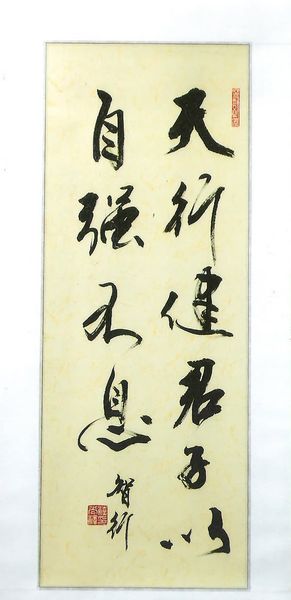 天行健君子以
自强不息
智行